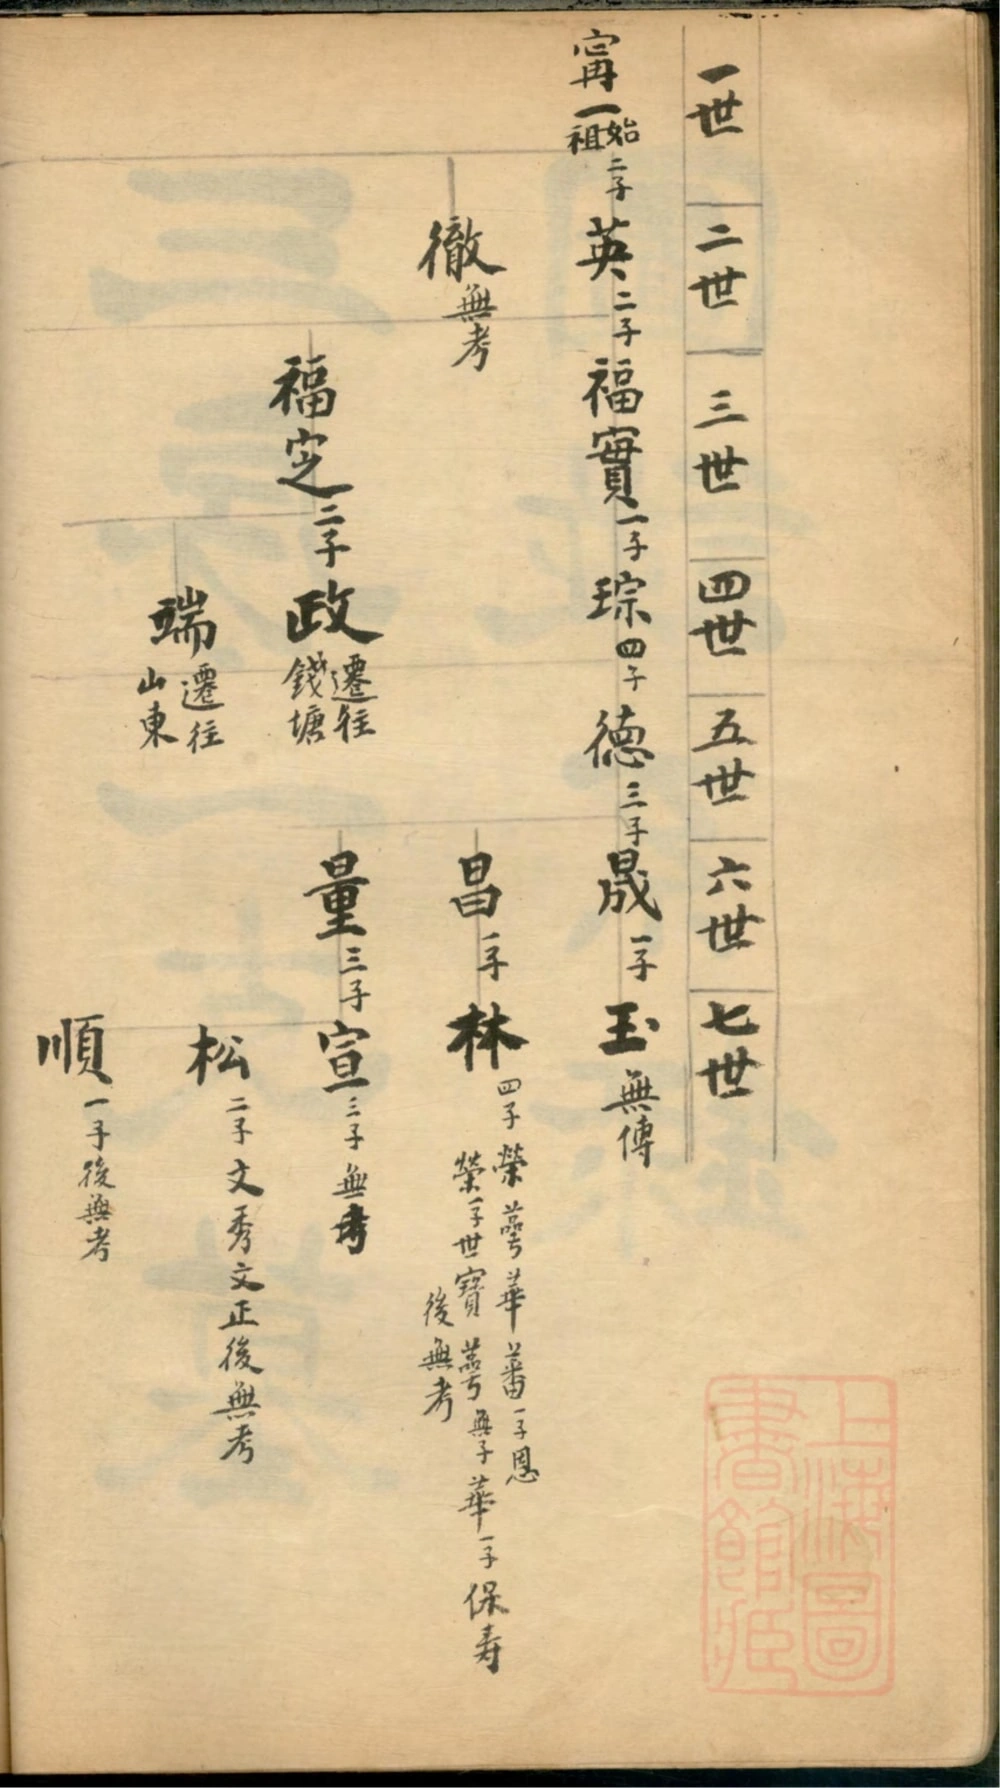 一世 二世 三世 四世 五世 六世 七世
甯一 始祖 二子 英 二子 福實 一子 琮 四子 德 三子 晟 一子 玉 無傳
徹 無考
昌 一子 林 四子 榮 萼 華 蕃 一子 恩
榮 一子 世寶 萼 無子 華 一子 保寿
後無考
福定 二子 政 遷往錢塘
量 三子 宣 三子 無考
端 遷往山東
松 二子 文秀 文正 後無考
順 一子 後無考
上海圖書館藏